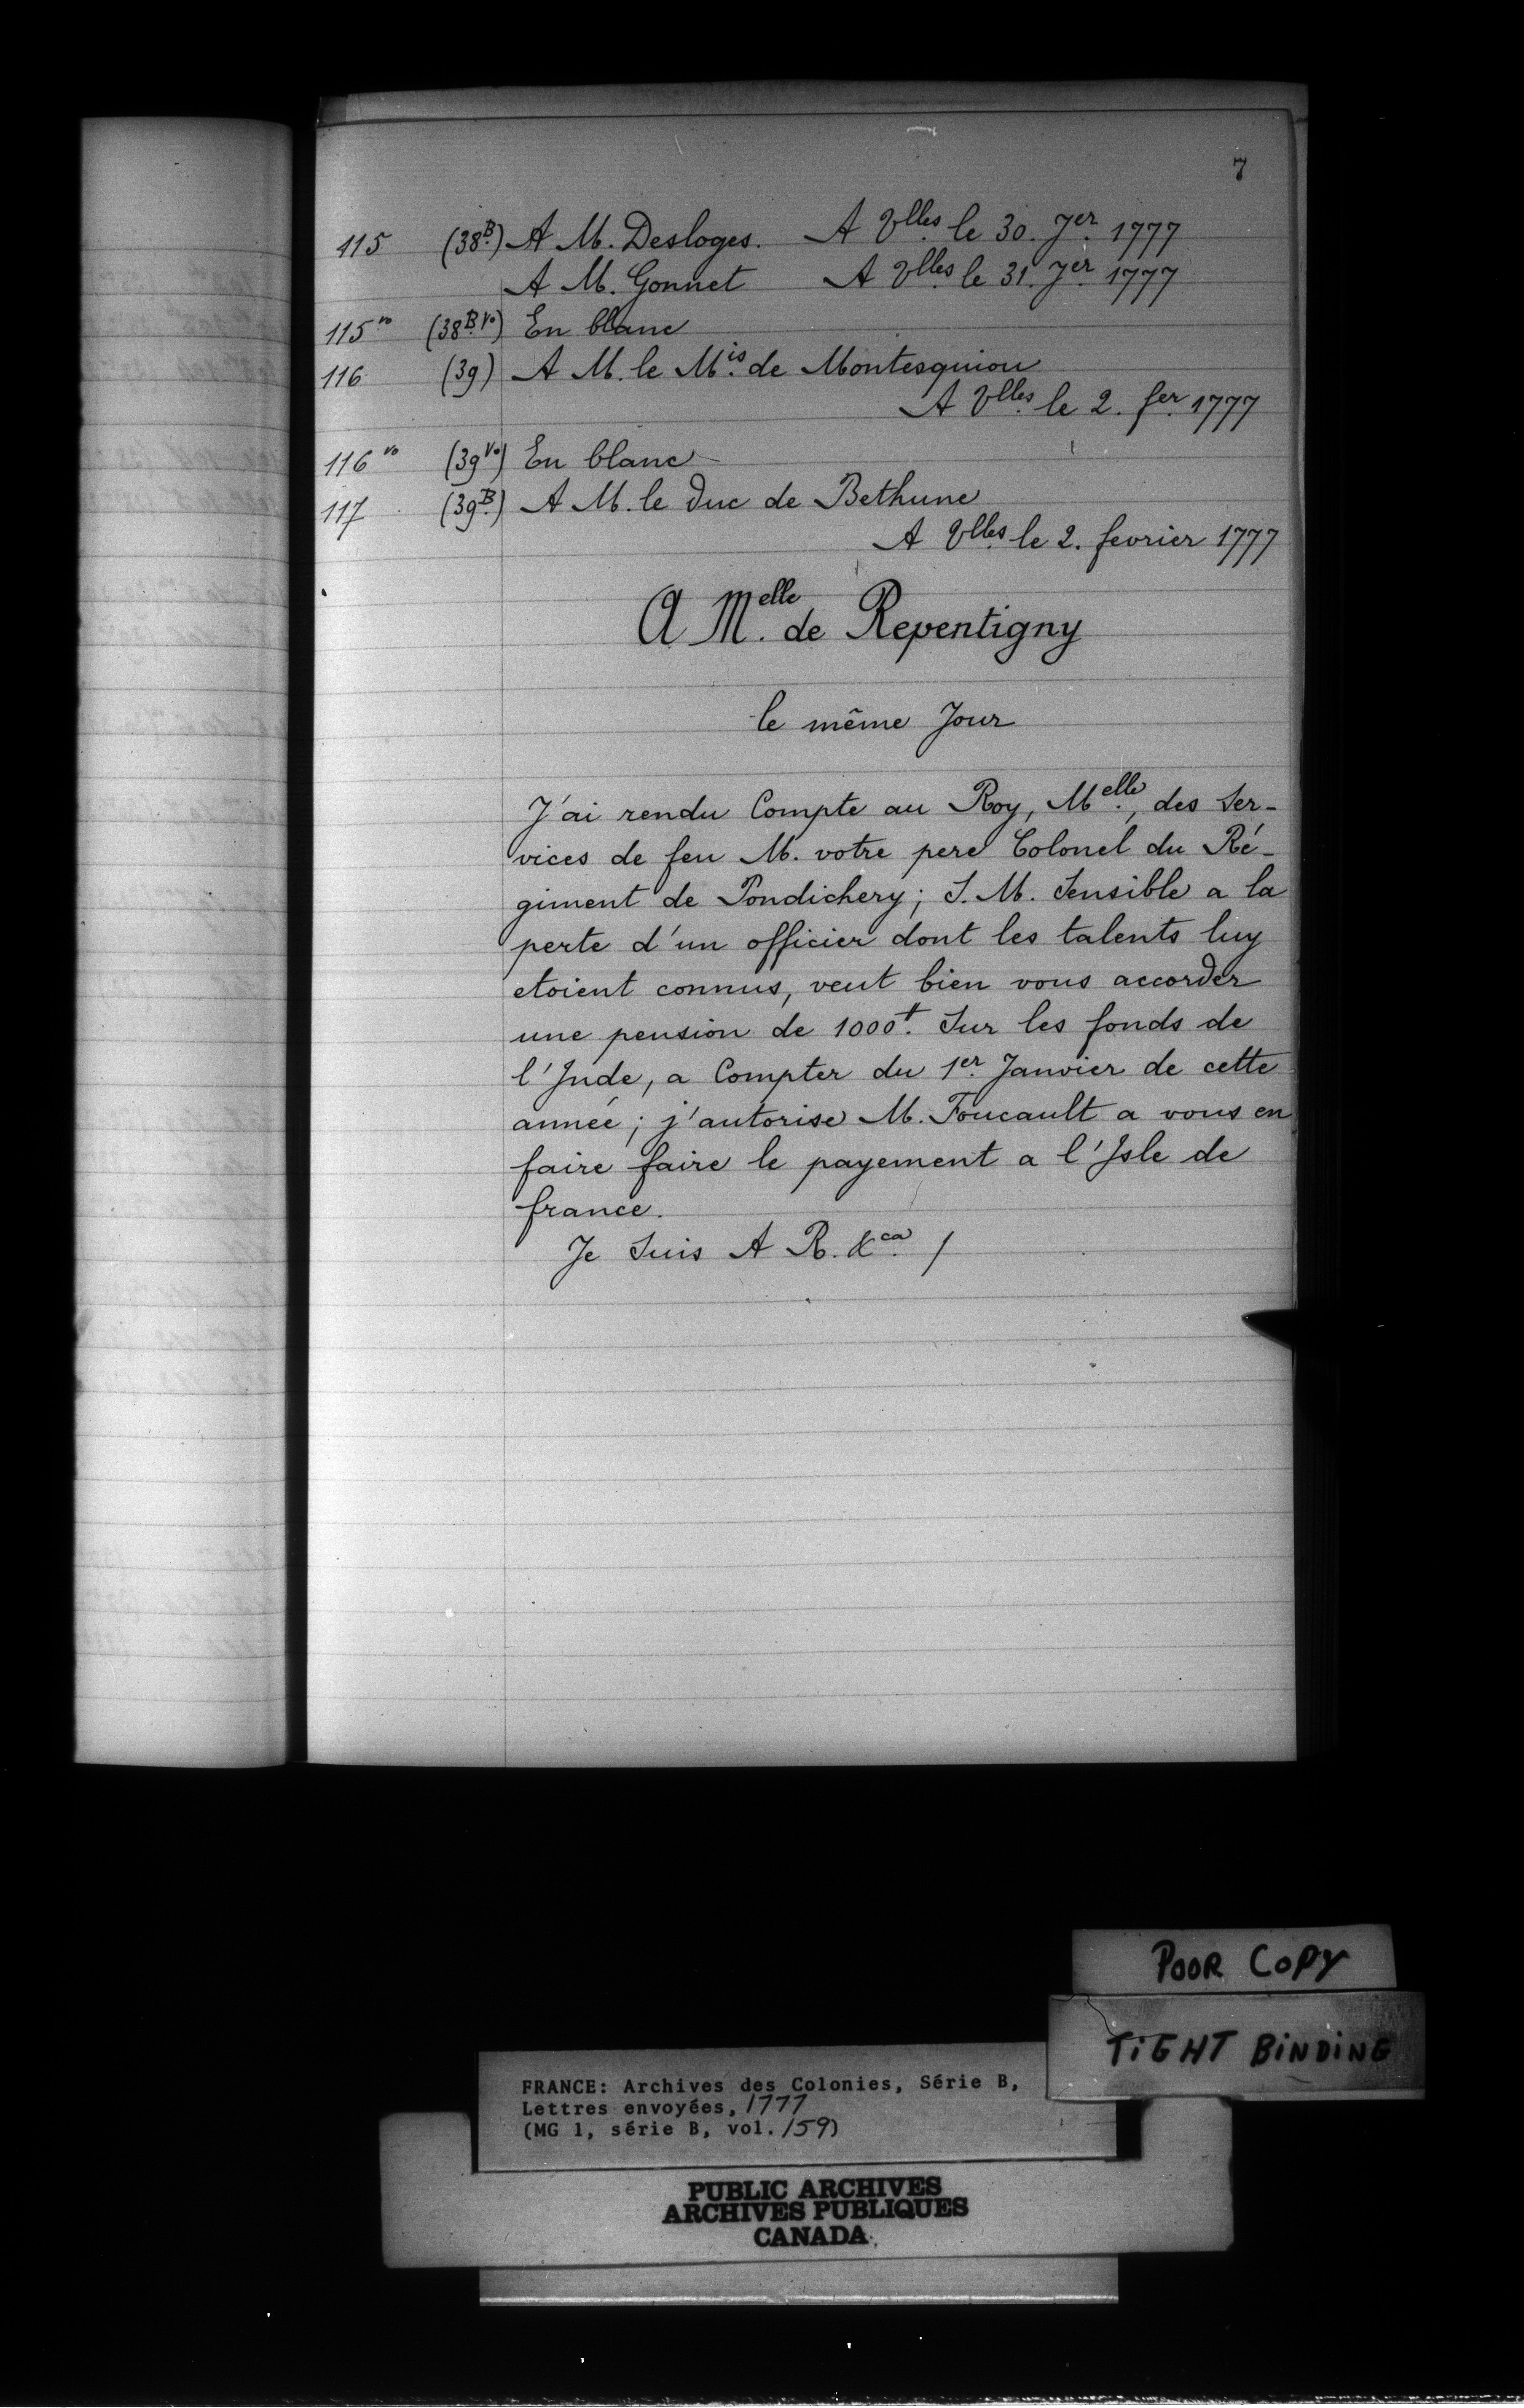 7
115 (38B.) A M. Desloges. A Vlles. le 30. Jer. 1777
A M. Gonnet A Vlles. le 31. Jer. 1777
115 vo (38B. Vo) En blanc
116 (39) A M. le Mis. de Montesquiou
A Vlles. le 2. fer. 1777
116 vo (39 Vo) En blanc
117 (39B.) A M. le Duc de Bethune
A Vlles. le 2. fevrier 1777
A Melle. de Repentigny
le même Jour
J'ai rendu Compte au Roy, Melle., des Ser-
vices de feu M. votre pere Colonel du Ré-
giment de Pondichery; S. M. Sensible a la
perte d'un officier dont les talents luy
etoient connus, veut bien vous accorder
une pension de 1000ᵗ. Sur les fonds de
l'Inde, a Compter du 1er. Janvier de cette
année; j'autorise M. Foucault a vous en
faire faire le payement a l'Isle de
france.
Je Suis A R. &ca. /
POOR COPY
TiGHT BiNDiNG
FRANCE: Archives des Colonies, Série B,
Lettres envoyées, 1777
(MG 1, série B, vol. 159)
PUBLIC ARCHIVES
ARCHIVES PUBLIQUES
CANADA